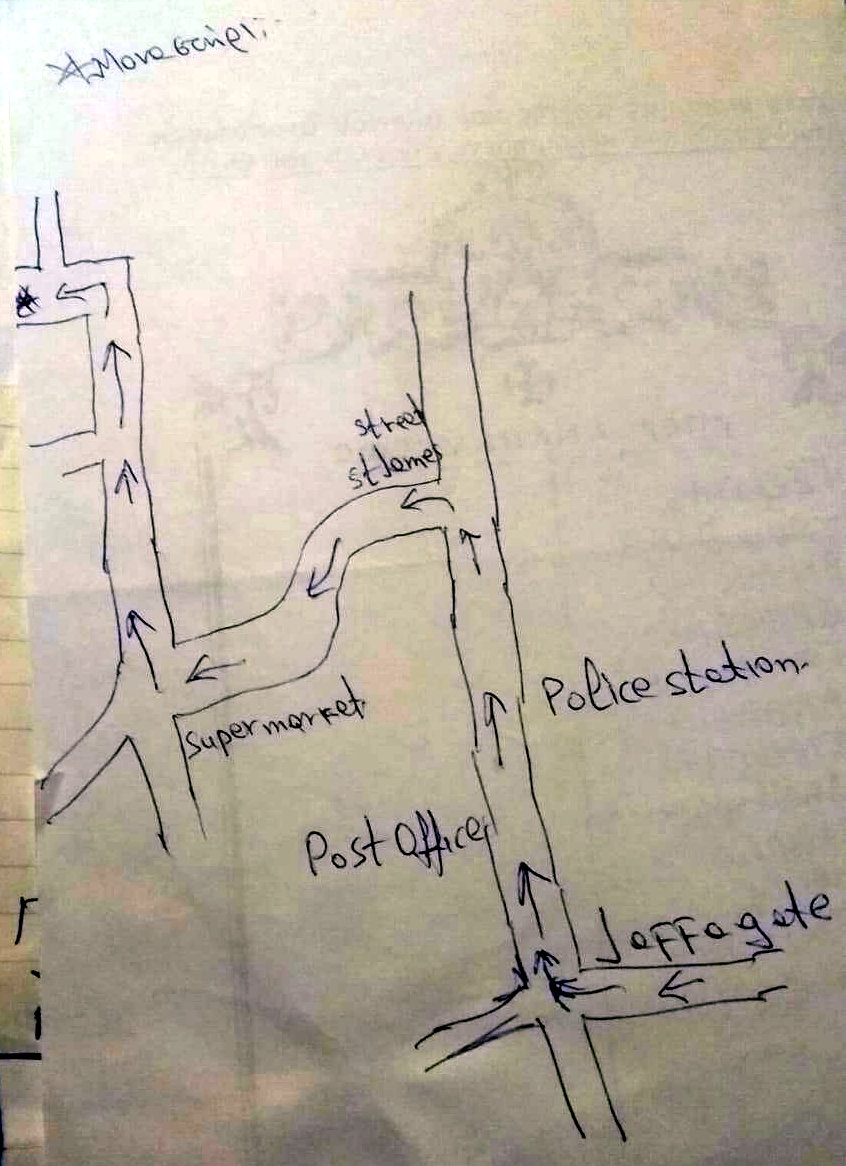 street
st James
Police station.
supermarket
Post Office
Jaffa gate